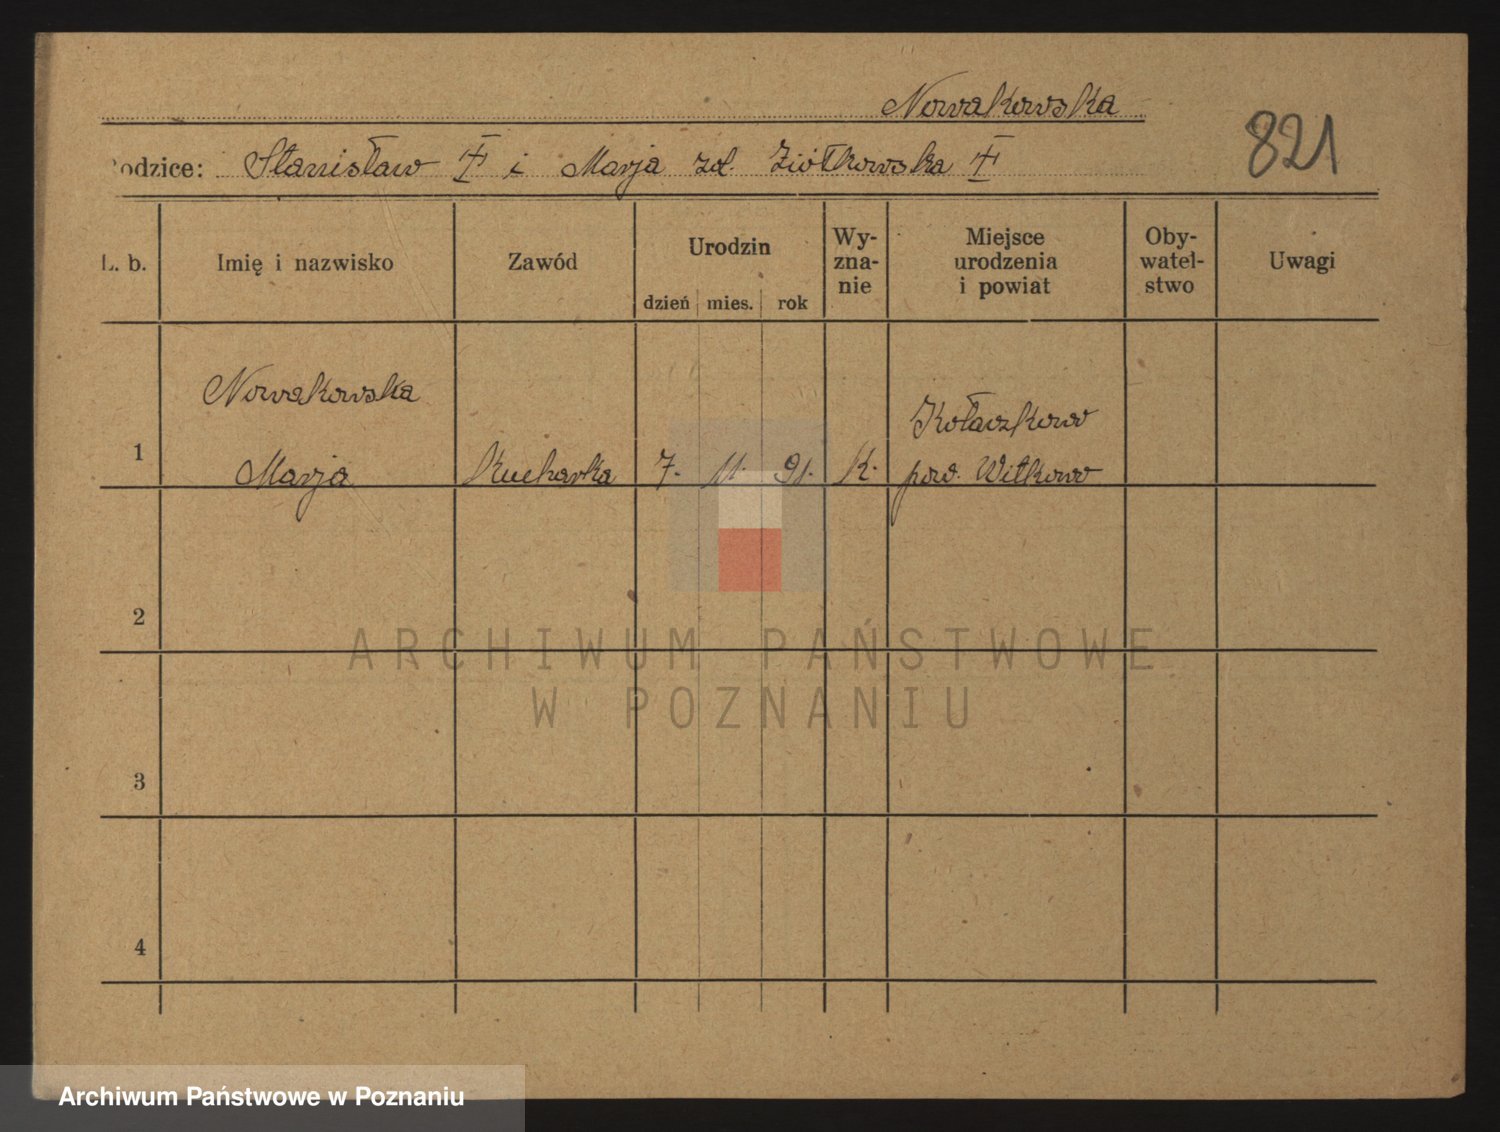 Nowakowska
821
odzice: Stanisław † i Marja zd. Ziółkowska †
L. b. Imię i nazwisko Zawód Urodzin dzień mies. rok Wy-zna-nie Miejsce urodzenia i powiat Oby-watel-stwo Uwagi
Nowakowska Kołaczkowo
1 Marja Kucharka 7. 11. 91. K. pow. Witkowo
2
ARCHIWUM PAŃSTWOWE
W POZNANIU
3
4
Archiwum Państwowe w Poznaniu